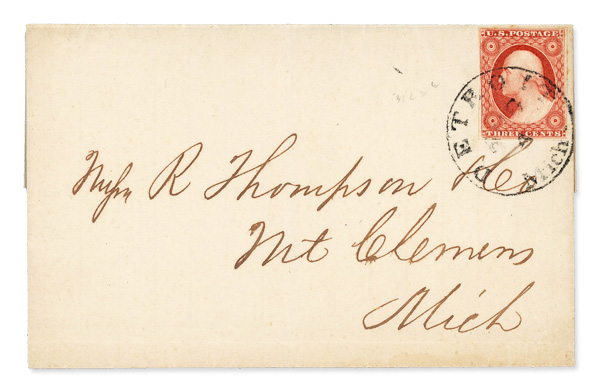 U.S. POSTAGE
THREE CENTS
DETROIT
Mich
R Thompson
Mt Clemens
Mich